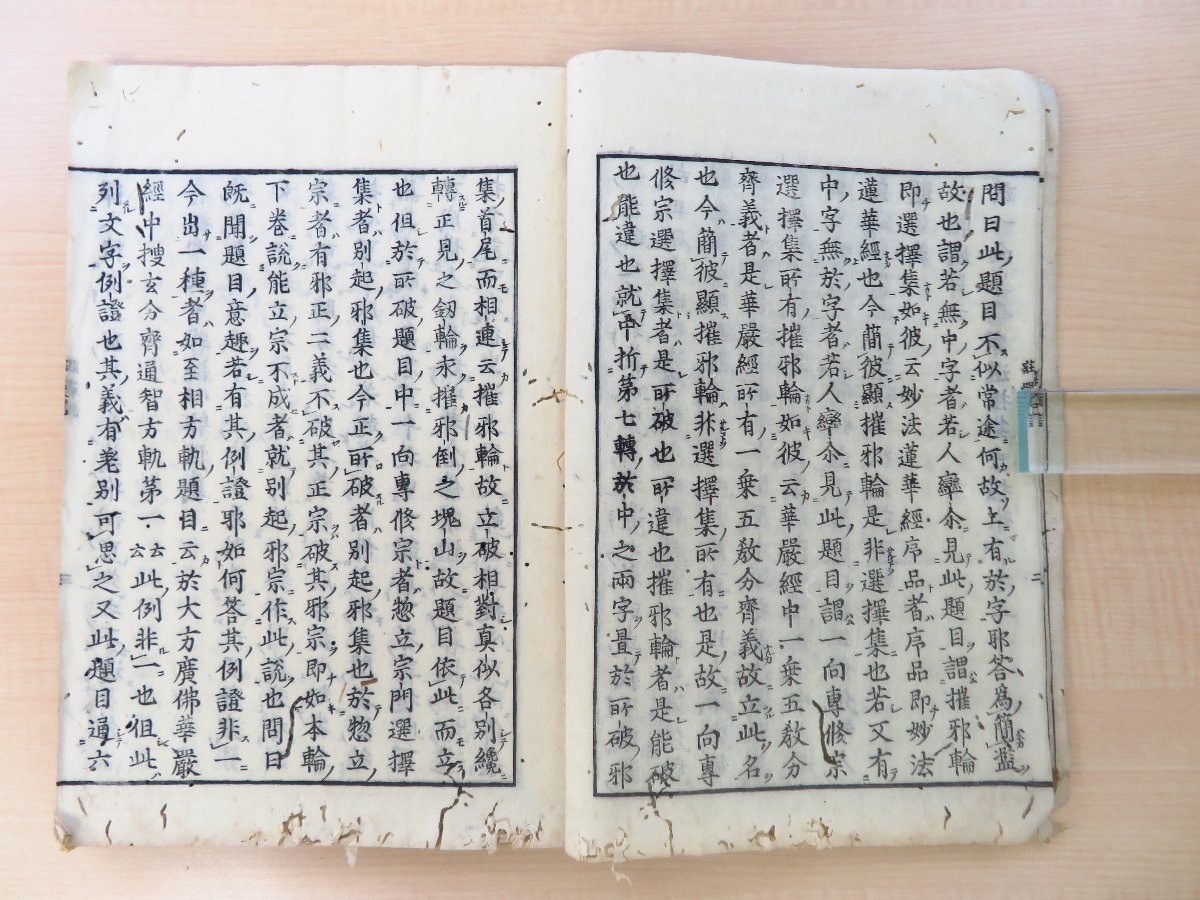 問曰此題目不似常途何故上有於字耶答為簡濫
故也謂若無中字者若人欒尒見此題目謂摧邪輪
即選擇集如彼云妙法蓮華經序品者序品即妙法
蓮華經也今簡彼顯摧邪輪是非選擇集也若又有
中字無於字者若人欒尒見此題目謂一向專修宗
選擇集所有摧邪輪如彼云華嚴經中一乗五教分
齊義者是華嚴經所有一乗五教分齊義故立此名
也今簡彼顯摧邪輪非選擇集所有也是故一向專
修宗選擇集者是所破也所違也摧邪輪者是能破
也能違也就中折第七轉於中之兩字置於所破邪
集首尾而相連云摧邪輪故立破相對真似各別纔
轉正見之釼輪永摧邪倒之塊山故題目依此而立
也但於所破題目中一向專修宗者惣立宗門選擇
集者別起邪集也今正所破者別起邪集也於惣立
宗者有邪正二義不破其正宗破其邪宗即如本輪
下巻說能立宗不成者就別起邪宗作此說也問曰
既聞題目意趣若有其例證耶如何答其例證非一
今出一種者如至相方軌題目云於大方廣佛華嚴
經中搜玄分齊通智方軌第一云云此例非一也但此
列文字例證也其義有差別可思之又此題目通六